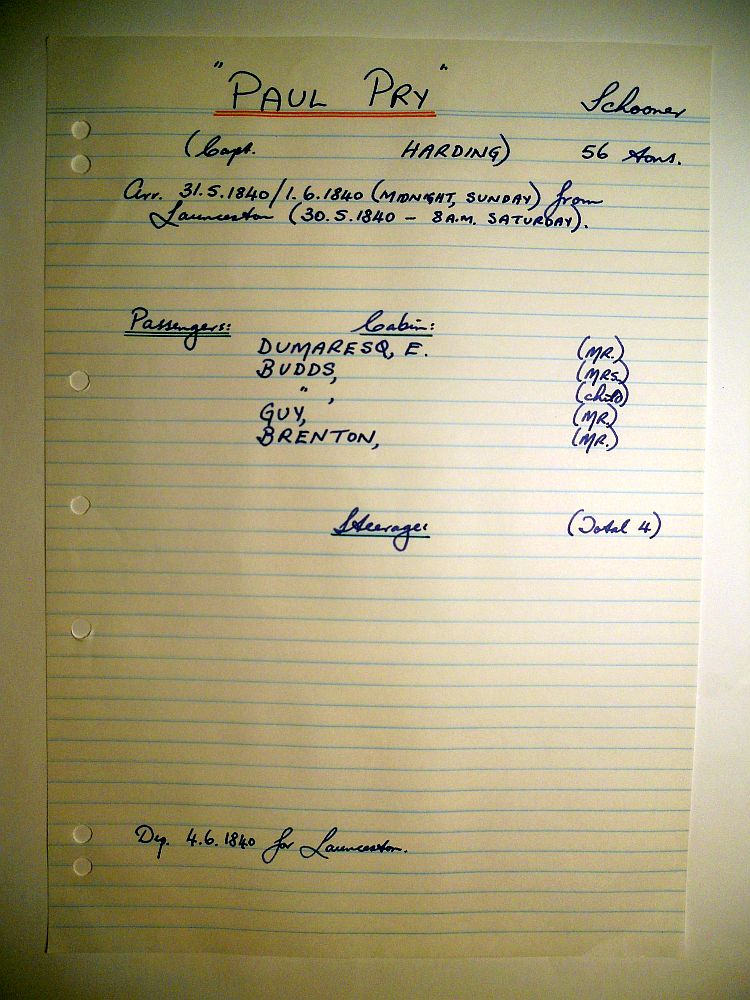 "PAUL PRY" Schooner
(Capt. HARDING) 56 tons.
Arr. 31.5.1840/1.6.1840 (MIDNIGHT, SUNDAY) from
Launceston (30.5.1840 - 8 A.M. SATURDAY).
Passengers: Cabin:
DUMARESQ, E. (MR.)
BUDDS, (MRS.)
" , (child)
GUY, (MR.)
BRENTON, (MR.)
Steerage: (Total 4)
Dep. 4.6.1840 for Launceston.